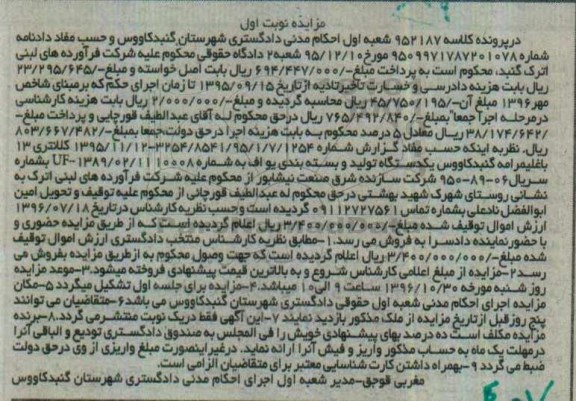 مزایده نوبت اول
درپرونده کلاسه ۹۵۲۱۸۷ شعبه اول احکام مدنی دادگستری شهرستان گنبدکاووس و حسب مفاد دادنامه
شماره ۹۵۰۹۹۷۱۷۸۷۲۰۱۰۷۸ مورخ ۹۵/۱۲/۱۰ شعبه۲ دادگاه حقوقی محکوم علیه شرکت فرآورده های لبنی
اترک گنبد، محکوم است به پرداخت مبلغ/۶۹۴/۴۴۷/۰۰۰ ریال بابت اصل خواسته و مبلغ-/۲۳/۲۹۵/۶۴۵
ریال بابت هزینه دادرسی و خسارت تأخیرتادیه ازتاریخ ۱۳۹۵/۰۹/۱۵ تا زمان اجرای حکم که برمبنای شاخص
مهر۱۳۹۶ مبلغ آن-/۴۵/۷۵۰/۱۹۵ ریال محاسبه گردیده و مبلغ-/۲/۰۰۰/۰۰۰ ریال بابت هزینه کارشناسی
درمرحله اجرا جمعاً بمبلغ-/۷۶۵/۴۹۲/۸۴۰ ریال درحق محکوم لـه آقای عبداللطیف قورچایی و پرداخت مبلغ-
/۳۸/۱۷۴/۶۴۲ ریال معادل ۵ درصد محکوم به بابت هزینه اجرا درحق دولت،جمعا بمبلغ-/۸۰۳/۶۶۷/۴۸۲
ریال. نظربه اینکه حسب مفاد گزارش شماره ۱۳۹۵/۱۱/۱۲-۳۲۵۴/۸۵۴۱/۹۵/۱/۷/۱۲۵۴ کلانتری ۱۳
باغلیمرامه گنبدکاووس یکدستگاه تولید و بسته بندی یو اف به شماره UF-۱۳۸۹/۰۲/۱۱۱۰۰۰۸ بشماره
سریال۰۶-۸۹-۹۵۰ شرکت سازنده شرق صنعت نیشابور از محکوم علیه شرکت فرآورده های لبنی اترک به
نشانی روستای شهرک شهید بهشتی درحق محکوم له عبدالطیف قورچائی از محکوم علیه توقیف و تحویل امین
ابوالفضل نادعلی بشماره تماس ۰۹۱۱۲۷۲۷۵۶۱ گردیده است وحسب نظریه کارشناس درتاریخ ۱۳۹۶/۰۷/۱۸
ارزش اموال توقیف شده مبلغ-/۳/۴۰۰/۰۰۰/۰۰۰ ریال اعلام گردیده است کـه از طریق مزایده حضوری و
با حضور نماینده دادسـرا به فروش می رسد.۱-مطابق نظریه کارشناس منتخب دادگستری ارزش اموال توقیف
شده مبلغ-/۳/۴۰۰/۰۰۰/۰۰۰ ریال اعلام گردیده است که جهت وصول محکوم به ازطریق مزایده بفروش می
رسد۲-مزایده از مبلغ اعلامی کارشناس شروع و به بالاترین قیمت پیشنهادی فروخته میشود.۳-موعد مزایده
روز شنبه مورخه ۱۳۹۶/۱۰/۳۰ ساعت ۹ الی ۱۰ میباشد.۴-مزایده برای جلسه اول تشکیل میگردد ۵-مکان
مزایده اجرای احکام مدنی شعبه اول حقوقی دادگستری شهرستان گنبدکاووس می باشد۶-متقاضیان می توانند
پنج روز قبل ازتاریخ مزایده از ملک مذکور بازدید نمایند ۷-این آگهی فقط دریک نوبت منتشـرمی گردد.۸-برنده
مزایده مکلف است ده درصد بهای پیشـنهادی خویش را فی المجلس به صندوق دادگستری تودیع و الباقی آنرا
درمهلت یک ماه به حساب مذکور واریز و فیش آنرا ارائه نماید. درغیر اینصورت مبلغ واریزی از وی درحق دولت
ضبط می گردد ۹-بهمراه داشتن کارت شناسایی معتبر برای متقاضیان الزامی است.
مغربی قوجق-مدیر شعبه اول اجرای احکام مدنی دادگستری شهرستان گنبدکاووس